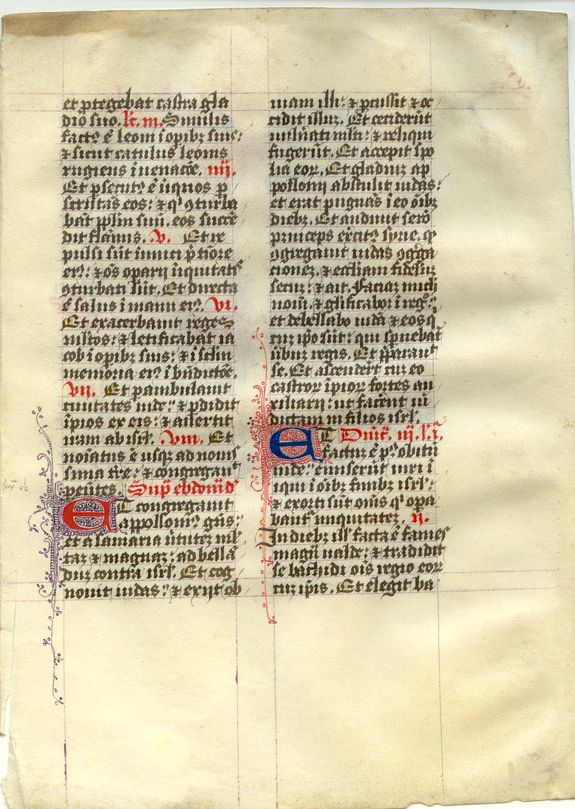 et ptegebat castra gla
dio suo. lc. iii. Similis
fact9 e leoni i opibz suis:
& sicut catulus leonis
rugiens i uenacoe. iiij.
Et psecut9 e iniquos p
scrutas eos: & q̇ 9turba
bat pplm suu. eos succe
dit flamis. v. Et re
pulsi sut inimici p timore
ei9: & oes operarij iniquitatis
9turbati sut. Et directa
e salus i manu ei9. vi.
Et exacerbauit reges
mltos: & letificabat ia
cob i opibz suis: & i sclm
memoria ei9 i bndictoe.
vij. Et pambulauit
ciuitates iude: & pdidit
ipios ex eis: & auertit
iram ab isrl. viii. Et
noiatus e usq ad nouis
sima tre: & congregauit
peuntes. Sup ebdomad
Et congregauit
appolloni9 gtes:
et a samaria uirtute ml
taz & magnaz: ad bella
duz contra isrl. Et cog
nouit iudas: & exijt ob
uiam illi: & pcussit & oc
cidit illuz. Et ceciderut
uulnati mlti: & reliqui
fugerut. Et accepit spo
lia eor. Et gladiuz ap
pollonij abstulit iudas:
et erat pugnas i eo oibz
diebz. Et audiuit sero
princeps excit9 syrie. q
9gregauit iudas 9gga
tionez. & eccliam fideliu
secuz: & ait. Faciaz michi
nom. & glificabor i regno:
et debellabo iuda & eos q
cuz ipo sut: qui spnebat
ubuz regis. Et pparauit
se. Et ascenderut cuz eo
castror ipior fortes au
xiliarij: ut facerent ui
dictam in filios isrl.
Et Dnic. iij. lc. i.
factuz e p9 obitu
iude: emiserut iniqui i
oibz finibz isrl:
& exorti sut oms q opa
bant iniquitatez. ii.
In diebz ill facta e fames
magna ualde: & tradidit
se bachidi ois regio eor
cuz ipis. Et elegit ba